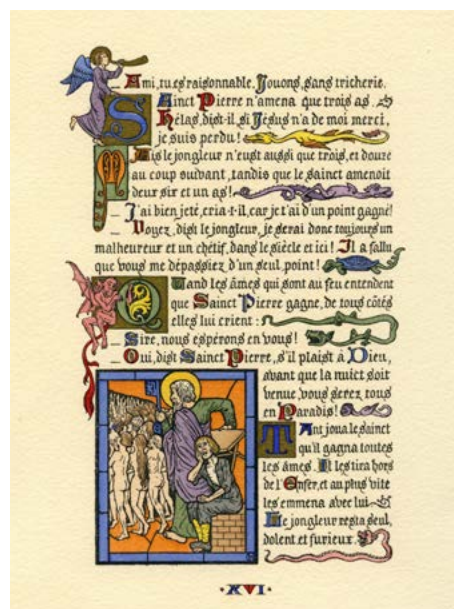 _ Ami, tu es raisonnable. Jouons, sans tricherie.
Sainct Pierre n'amena que trois as.
_ Hélas, dist-il, si Jésus n'a de moi merci,
je suis perdu!
Mais le jongleur n'eust aussi que trois, et douze
au coup suivant, tandis que le sainct amenoit
deux six et un as!
_ J'ai bien jeté, cria-t-il, car je t'ai d'un point gagné!
_ Voyez, dist le jongleur, je serai donc toujours un
malheureux et un chétif, dans le siècle et ici! Il a fallu
que vous me dépassiez d'un seul point!
Quand les âmes qui sont au feu entendent
que Sainct Pierre gagne, de tous côtés
elles lui crient:
_ Sire, nous espérons en vous!
_ Oui, dist Sainct Pierre, s'il plaist à Dieu,
avant que la nuict soit
venue! vous serez tous
en Paradis!
Tant joua le sainct
qu'il gagna toutes
les âmes. Il les tira hors
de l'Enfer, et au plus vite
les emmena avec lui
Le jongleur resta seul,
dolent et furieux.
·XVI·